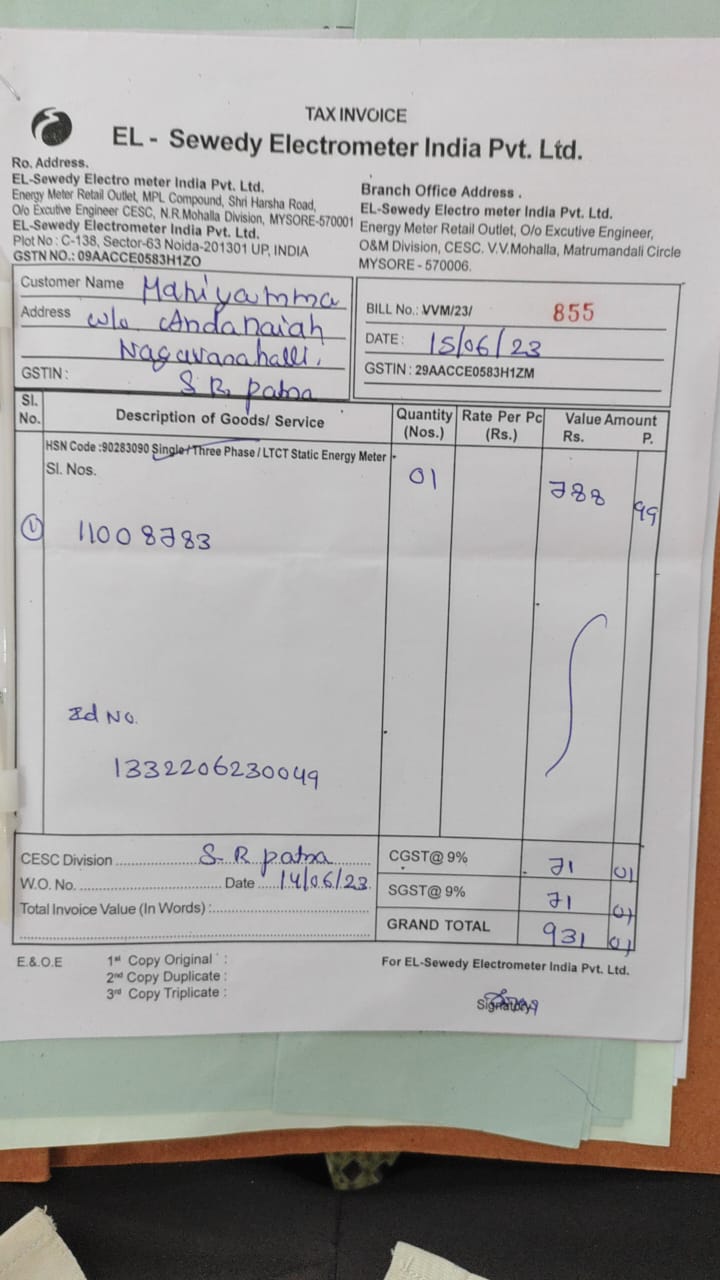 TAX INVOICE
EL - Sewedy Electrometer India Pvt. Ltd.
Ro. Address.
EL-Sewedy Electro meter India Pvt. Ltd.
Energy Meter Retail Outlet, MPL Compound, Shri Harsha Road,
O/o Excutive Engineer CESC, N.R.Mohalla Division, MYSORE-570001
EL-Sewedy Electrometer India Pvt. Ltd.
Plot No : C-138, Sector-63 Noida-201301 UP, INDIA
GSTN NO.: 09AACCE0583H1ZO
Branch Office Address .
EL-Sewedy Electro meter India Pvt. Ltd.
Energy Meter Retail Outlet, O/o Excutive Engineer,
O&M Division, CESC. V.V.Mohalla, Matrumandali Circle
MYSORE - 570006.
Customer Name Mahiyamma
Address w/o Andanaiah
Nagavanahalli.
GSTIN : S R patna
BILL No.: VVM/23/ 855
DATE : 15/06/23
GSTIN : 29AACCE0583H1ZM
Sl. No. Description of Goods/ Service Quantity (Nos.) Rate Per Pc (Rs.) Value Amount Rs. P.
HSN Code :90283090 Single / Three Phase / LTCT Static Energy Meter
Sl. Nos. 01 788 99
1 11008783
Id No.
1332206230049
CESC Division S R patna
W.O. No. Date 14/06/23
Total Invoice Value (In Words) :
CGST@ 9% 71 01
SGST@ 9% 71 01
GRAND TOTAL 931 01
E.&.O.E 1st Copy Original :
2nd Copy Duplicate :
3rd Copy Triplicate :
For EL-Sewedy Electrometer India Pvt. Ltd.
Signatory